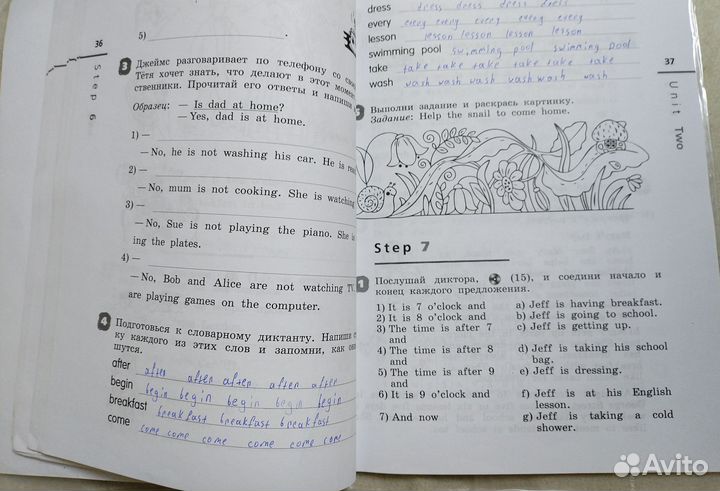 5)
36
Step 6
3 Джеймс разговаривает по телефону со
Тётя хочет знать, что делают в этот
ственники. Прочитай его ответы и
Образец: — Is dad at home?
— Yes, dad is at home.
1) —
—No, he is not washing his car. He is
2) —
—No, mum is not cooking. She is watching
3) —
—No, Sue is not playing the piano. She
ing the plates.
4) —
—No, Bob and Alice are not watching TV.
are playing games on the computer.
4 Подготовься к словарному диктанту. Напиши
ку каждого из этих слов и запомни, как они
шутся.
after after after after after after
begin begin begin begin begin begin
breakfast breakfast breakfast breakfast
come come come come come come come
dress dress dress dress dress
every every every every every every
lesson lesson lesson lesson lesson
swimming pool swimming pool swimming pool
take take take take take take take
wash wash wash wash wash wash wash
37
Unit Two
5 Выполни задание и раскрась картинку.
Задание: Help the snail to come home.
Step 7
1 Послушай диктора, (15), и соедини начало и
конец каждого предложения.
1) It is 7 o'clock and a) Jeff is having breakfast.
2) It is 8 o'clock and b) Jeff is going to school.
3) The time is after 7 c) Jeff is getting up.
and
4) The time is after 8 d) Jeff is taking his school
and bag.
5) The time is after 9 e) Jeff is dressing.
and
6) It is 9 o'clock and f) Jeff is at his English
lesson.
7) And now g) Jeff is taking a cold
shower.
Avito